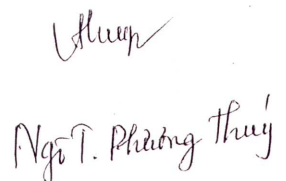 Ngô T. Phương Thuý